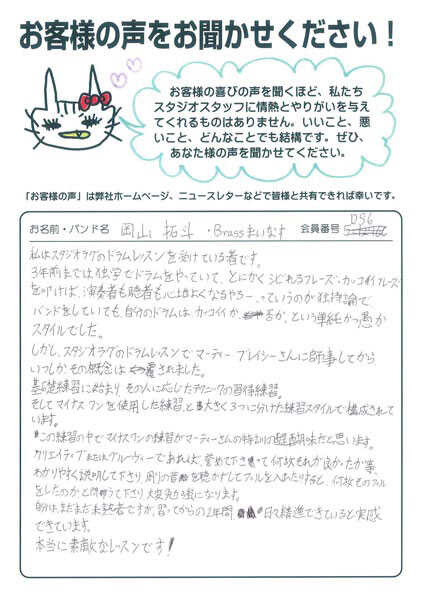 お客様の声をお聞かせください！
お客様の喜びの声を聞くほど、私たち
スタジオスタッフに情熱とやりがいを与え
てくれるものはありません。いいこと、悪
いこと、どんなことでも結構です。ぜひ、
あなた様の声を聞かせてください。
「お客様の声」は弊社ホームページ、ニュースレターなどで皆様と共有できれば幸いです。
お名前・バンド名 岡山 拓斗 ・Brassまいなす 会員番号 DS6
私はスタジオラグのドラムレッスンを受けている者です。
3年前までは独学でドラムをやっていて、とにかくシビれるフレーズ・カッコイイフレーズ
を叩けば、演奏者も聴者も心地よくなるやろー、っていうのが独持論で
バンドをしていても、自分のドラムは、カッコイイか、否か、という単純かつ愚か
スタイルでした。
しかし、スタジオラグのドラムレッスンでマーティー・ブレイシーさんに師事してから
いつしかその概念は覆されました。
基礎練習に始まり、その人に応じたテクニックの習得練習。
そしてマイナスワンを使用した練習、と大きく3つに分けた練習スタイルで構成されて
います。
この練習の中でマイナスワンの練習がマーティーさんの特訓の醍醐味だと思います。
クリエイティブまたはグルーヴィーであれば、誉めて下さって何故それが良かったか事、
わかりやすく説明して下さり、周りの音を聴かずしてフィルを入れたりすると、何故そのフィル
をしたのかと問うて下り、大変気が楽になります。
自分は、まだまだ未熟者ですが、習ってからの2年間、日々精進できていると実感
できています。
本当に素敵なレッスンです！